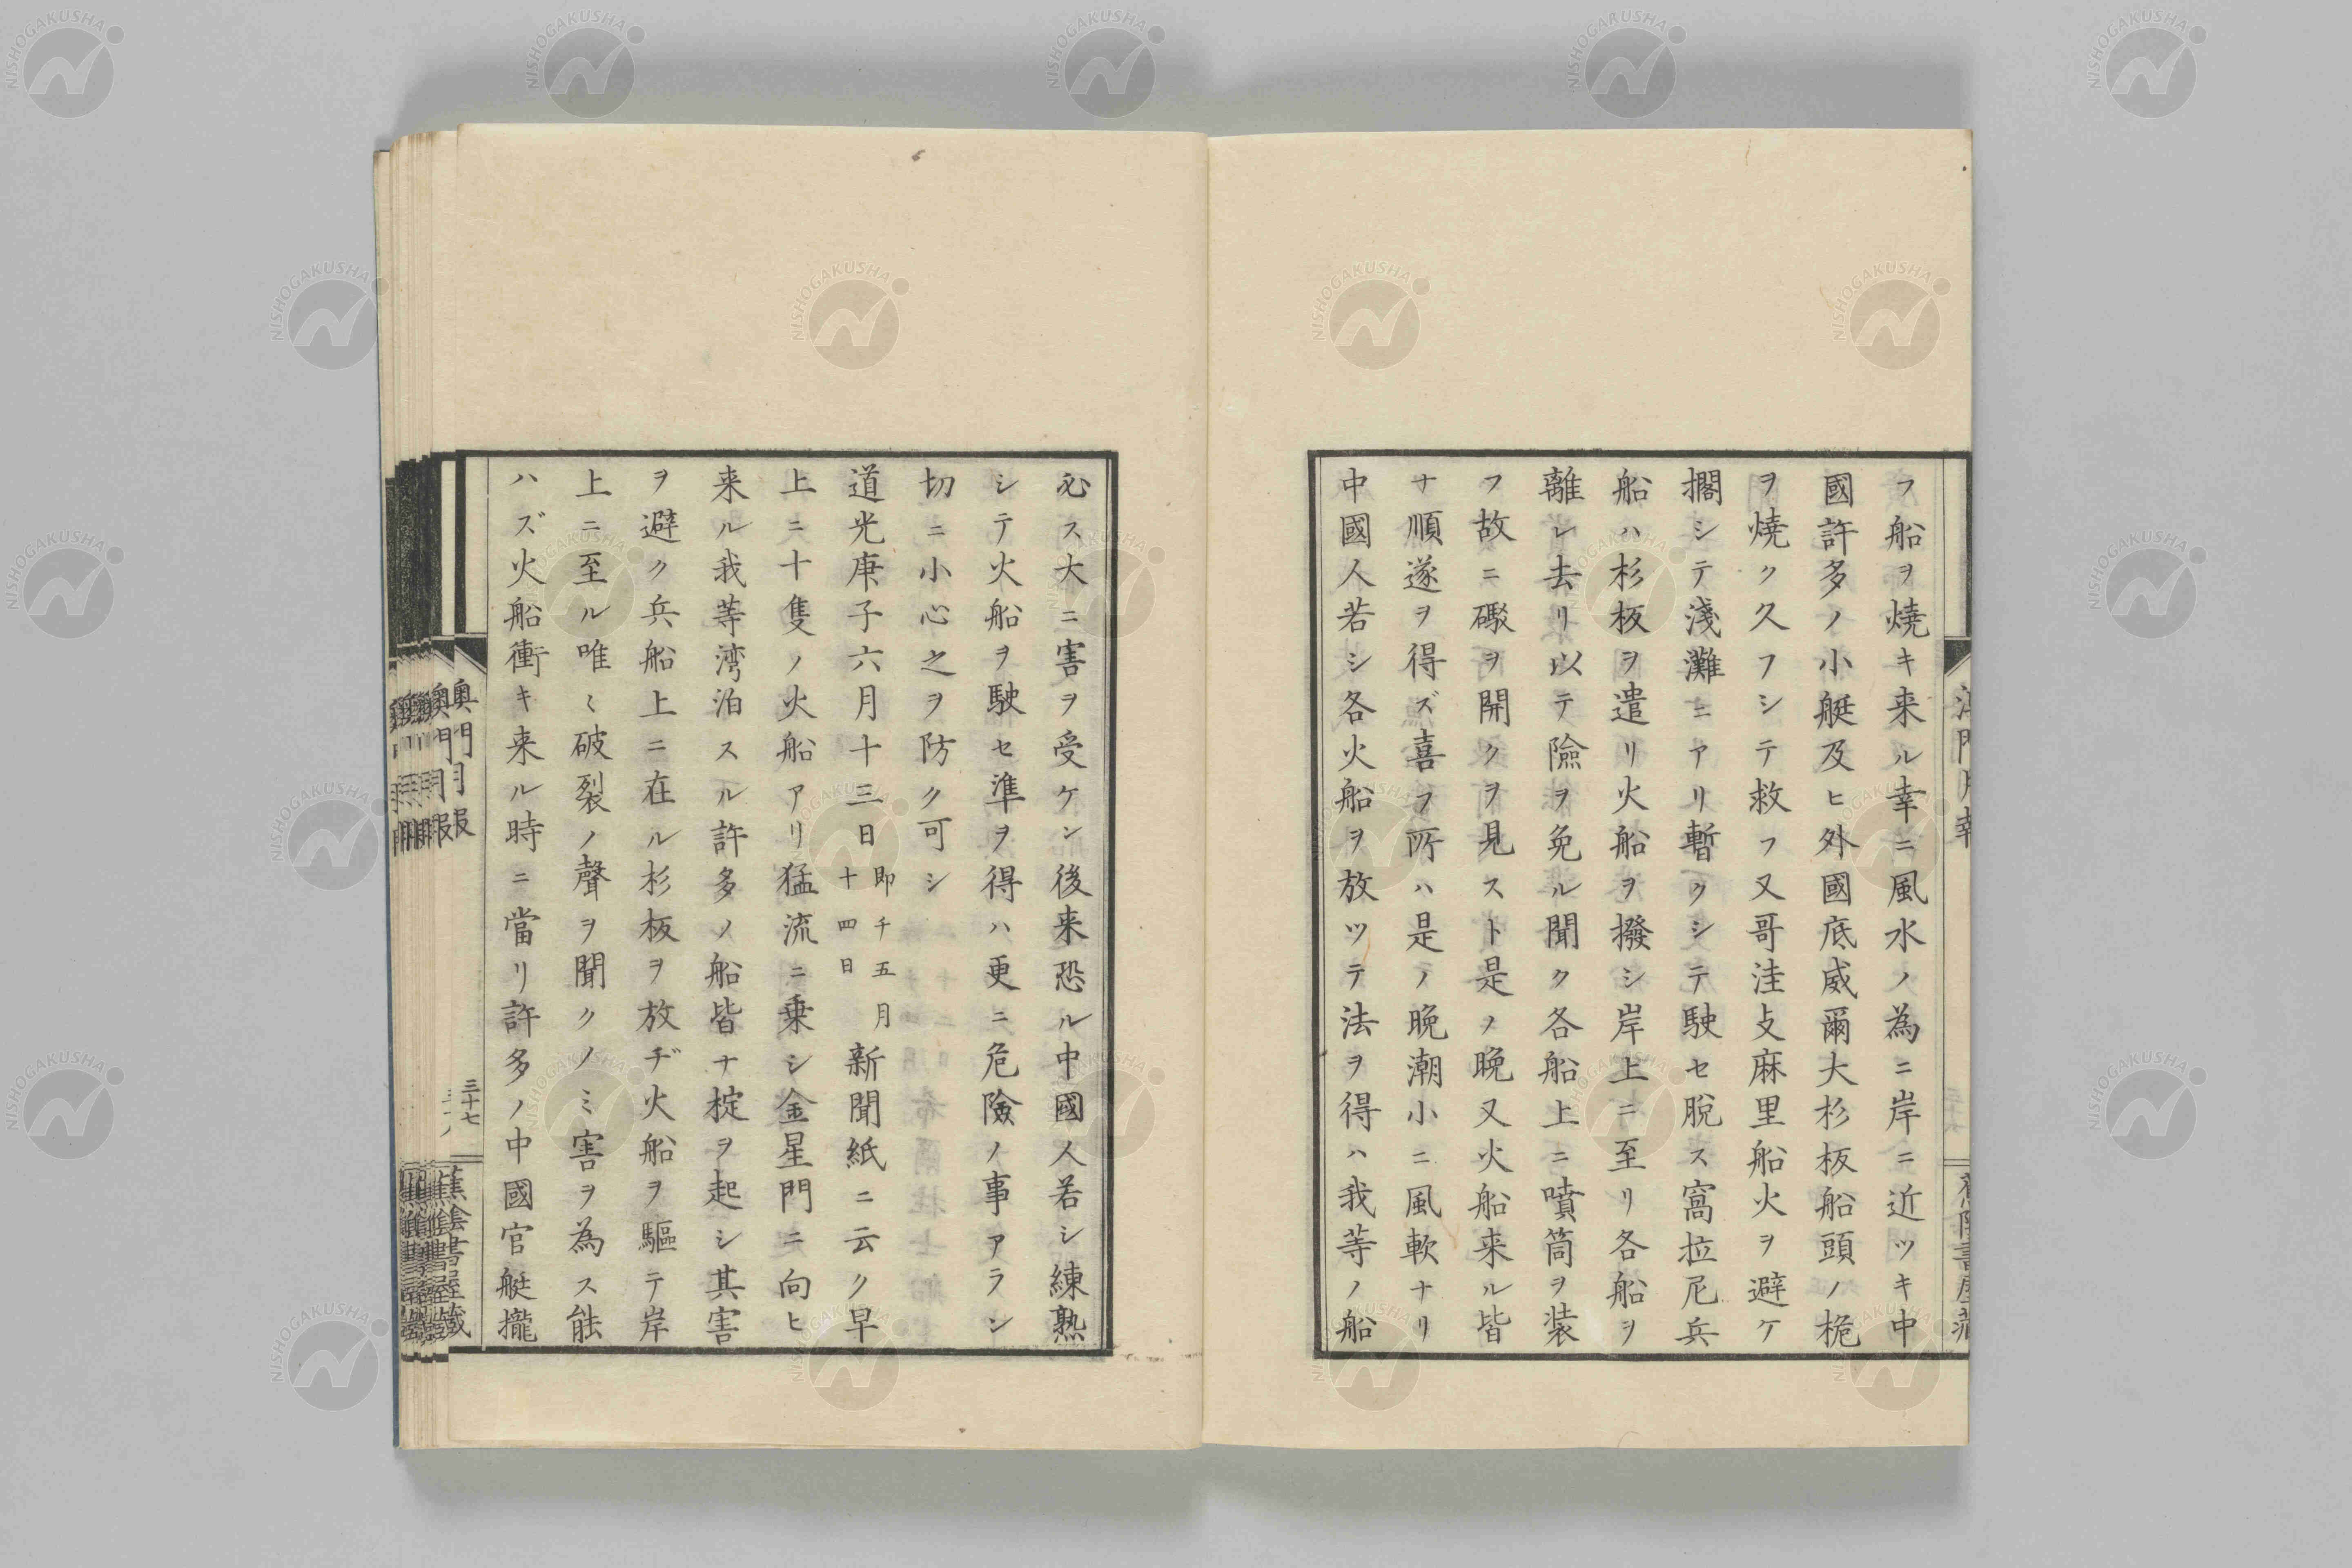 フ船ヲ燒キ来ル幸ニ風水ノ為ニ岸ニ近ツキ中
國許多ノ小艇及ヒ外國底威爾大杉板船頭ノ桅
ヲ燒ク久フシテ救フ又哥洼攴麻里船火ヲ避ケ
擱シテ淺灘ニアリ暫クシテ駛セ脫ス窩拉尼兵
船ハ杉板ヲ遣リ火船ヲ撥シ岸上ニ至リ各船ヲ
離レ去リ以テ險ヲ免ル聞ク各船上ニ噴筒ヲ装
フ故ニ礮ヲ開クヲ見スト是ノ晩又火船来ル皆
ナ順遂ヲ得ズ喜フ所ハ是ノ晩潮小ニ風軟ナリ
中國人若シ各火船ヲ放ツテ法ヲ得ハ我等ノ船
必ス大ニ害ヲ受ケン後来恐ル中國人若シ練熟
シテ火船ヲ駛セ準ヲ得ハ更ニ危險ノ事アラン
切ニ小心之ヲ防ク可シ
道光庚子六月十三日即千五月十四日新聞紙ニ云ク早
上ニ十隻ノ火船アリ猛流ニ乗シ金星門ニ向ヒ
来ル我等湾泊スル許多ノ船皆ナ椗ヲ起シ其害
ヲ避ク兵船上ニ在ル杉板ヲ放ヂ火船ヲ驅テ岸
上ニ至ル唯〻破裂ノ聲ヲ聞クノミ害ヲ為ス能
ハズ火船衝キ来ル時ニ當リ許多ノ中國官艇攏
澳門月報
三十七
蕉陰書屋蔵